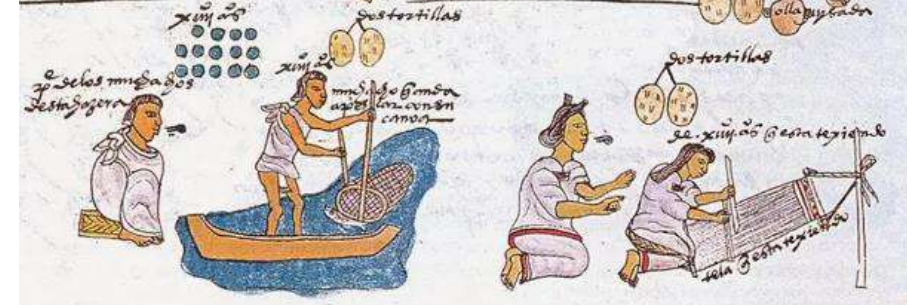 xiiij años
dos tortillas
pe de los muchachos
desta hazera
xiiij aos
muchacho q anda
a pescar con su
canoa
olla guisada
dos tortillas
de xiiij aos q esta texiendo
tela q esta texiendo